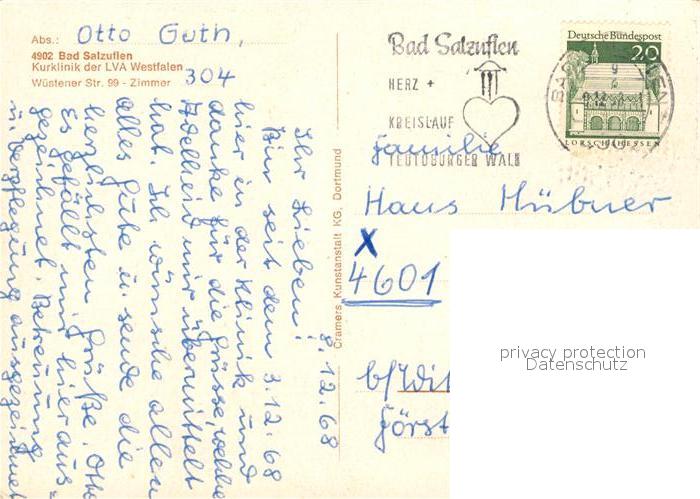 Abs.: Otto Guth,
4902 Bad Salzuflen
Kurklinik der LVA Westfalen
Wüstener Str. 99 - Zimmer 304
8.12.68
Ihr Lieben!
Bin seit dem 3.12.68
hier in der Klinik und
danke für die Grüsse, welche
Adelheid mir übermittelt
hat. Ich wünsche allen
alles Gute u. sende die
herzlichsten Grüße. Otto
Es gefällt mir hier aus-
gezeichnet. Betreuung
u. Verpflegung ausgezeichnet
Cramers Kunstanstalt KG, Dortmund
Bad Salzuflen
HERZ +
KREISLAUF
TEUTOBURGER WALD
Deutsche Bundespost
20
LORSCH/HESSEN
Familie
Hans Hübner
X
4601
b/Wit
Först
privacy protection
Datenschutz